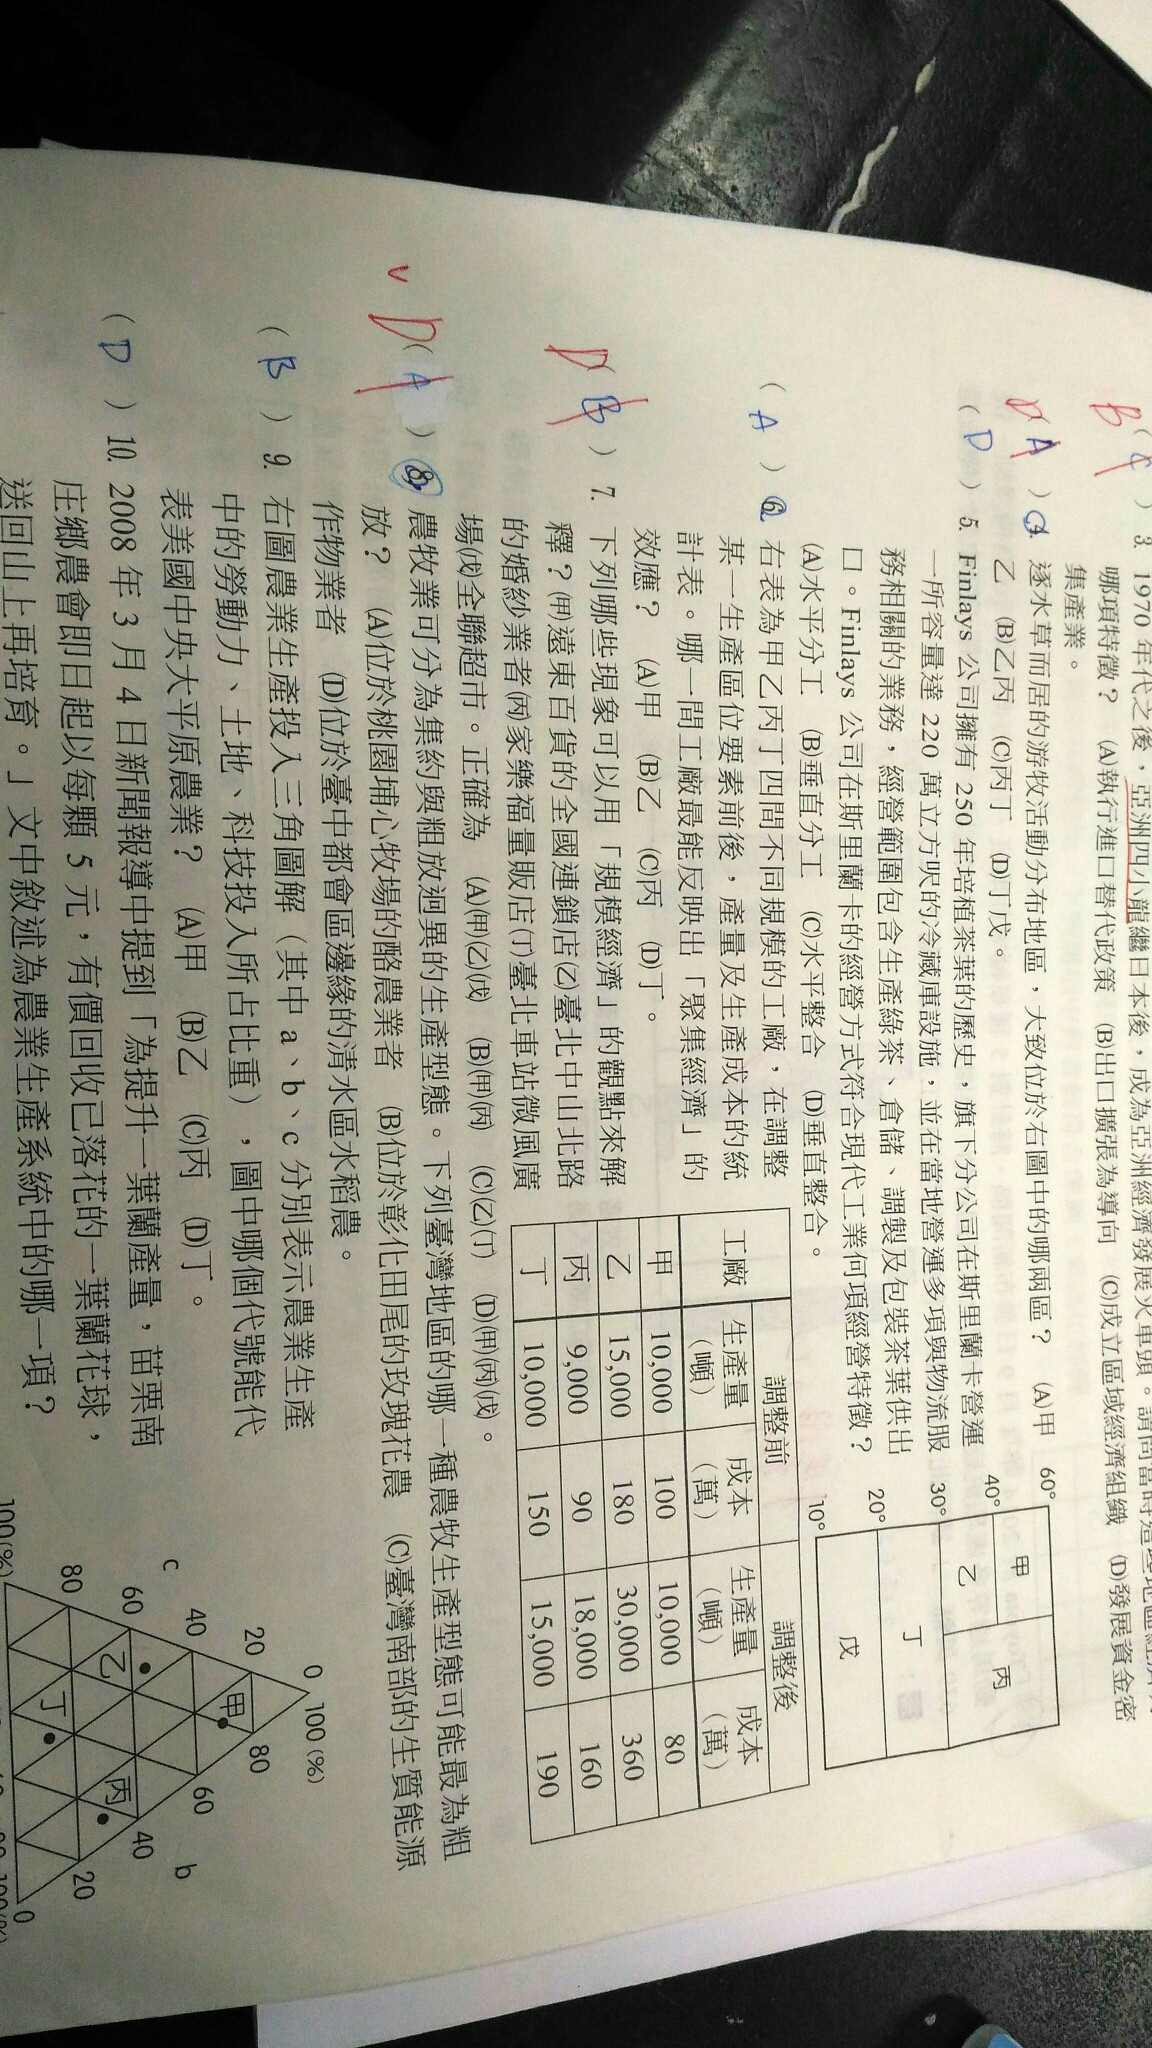 B ( ) 3. 1970 年代之後，亞洲四小龍繼日本後，成為亞洲經濟發展火車頭。請問當時
哪項特徵？ (A)執行進口替代政策 (B)出口擴張為導向 (C)成立區域經濟組織 (D)發展資金密
集產業。
D ( A ) 4. 逐水草而居的游牧活動分布地區，大致位於右圖中的哪兩區？ (A)甲
乙 (B)乙丙 (C)丙丁 (D)丁戊。
( D ) 5. Finlays 公司擁有 250 年培植茶葉的歷史，旗下分公司在斯里蘭卡營運
一所容量達 220 萬立方呎的冷藏庫設施，並在當地營運多項與物流服
務相關的業務，經營範圍包含生產綠茶、倉儲、調製及包裝茶葉供出
口。Finlays 公司在斯里蘭卡的經營方式符合現代工業何項經營特徵？
(A)水平分工 (B)垂直分工 (C)水平整合 (D)垂直整合。
60°
40°
30°
20°
10°
甲
乙
丙
丁
戊
( A ) 6. 右表為甲乙丙丁四間不同規模的工廠，在調整
某一生產區位要素前後，產量及生產成本的統
計表。哪一間工廠最能反映出「聚集經濟」的
效應？ (A)甲 (B)乙 (C)丙 (D)丁。
工廠 調整前 調整後
生產量(噸) 成本(萬) 生產量(噸) 成本(萬)
甲 10,000 100 10,000 80
乙 15,000 180 30,000 360
丙 9,000 90 18,000 160
丁 10,000 150 15,000 190
D ( B ) 7. 下列哪些現象可以用「規模經濟」的觀點來解
釋？(甲)遠東百貨的全國連鎖店(乙)臺北中山北路
的婚紗業者(丙)家樂福量販店(丁)臺北車站微風廣
場(戊)全聯超市。正確為 (A)(甲)(乙)(戊) (B)(甲)(丙) (C)(乙)(丁) (D)(甲)(丙)(戊)。
D ( A ) 8. 農牧業可分為集約與粗放迥異的生產型態。下列臺灣地區的哪一種農牧生產型態可能最為粗
放？ (A)位於桃園埔心牧場的酪農業者 (B)位於彰化田尾的玫瑰花農 (C)臺灣南部的生質能源
作物業者 (D)位於臺中都會區邊緣的清水區水稻農。
( B ) 9. 右圖農業生產投入三角圖解（其中 a、b、c 分別表示農業生產
中的勞動力、土地、科技投入所占比重），圖中哪個代號能代
表美國中央大平原農業？ (A)甲 (B)乙 (C)丙 (D)丁。
( D ) 10. 2008 年 3 月 4 日新聞報導中提到「為提升一葉蘭產量，苗栗南
庄鄉農會即日起以每顆 5 元，有價回收已落花的一葉蘭花球，
送回山上再培育。」文中敘述為農業生產系統中的哪一項？
0 100 (%)
20 80
40 60
60 40
80 20
100(%) 0
c
b
甲
乙
丙
丁